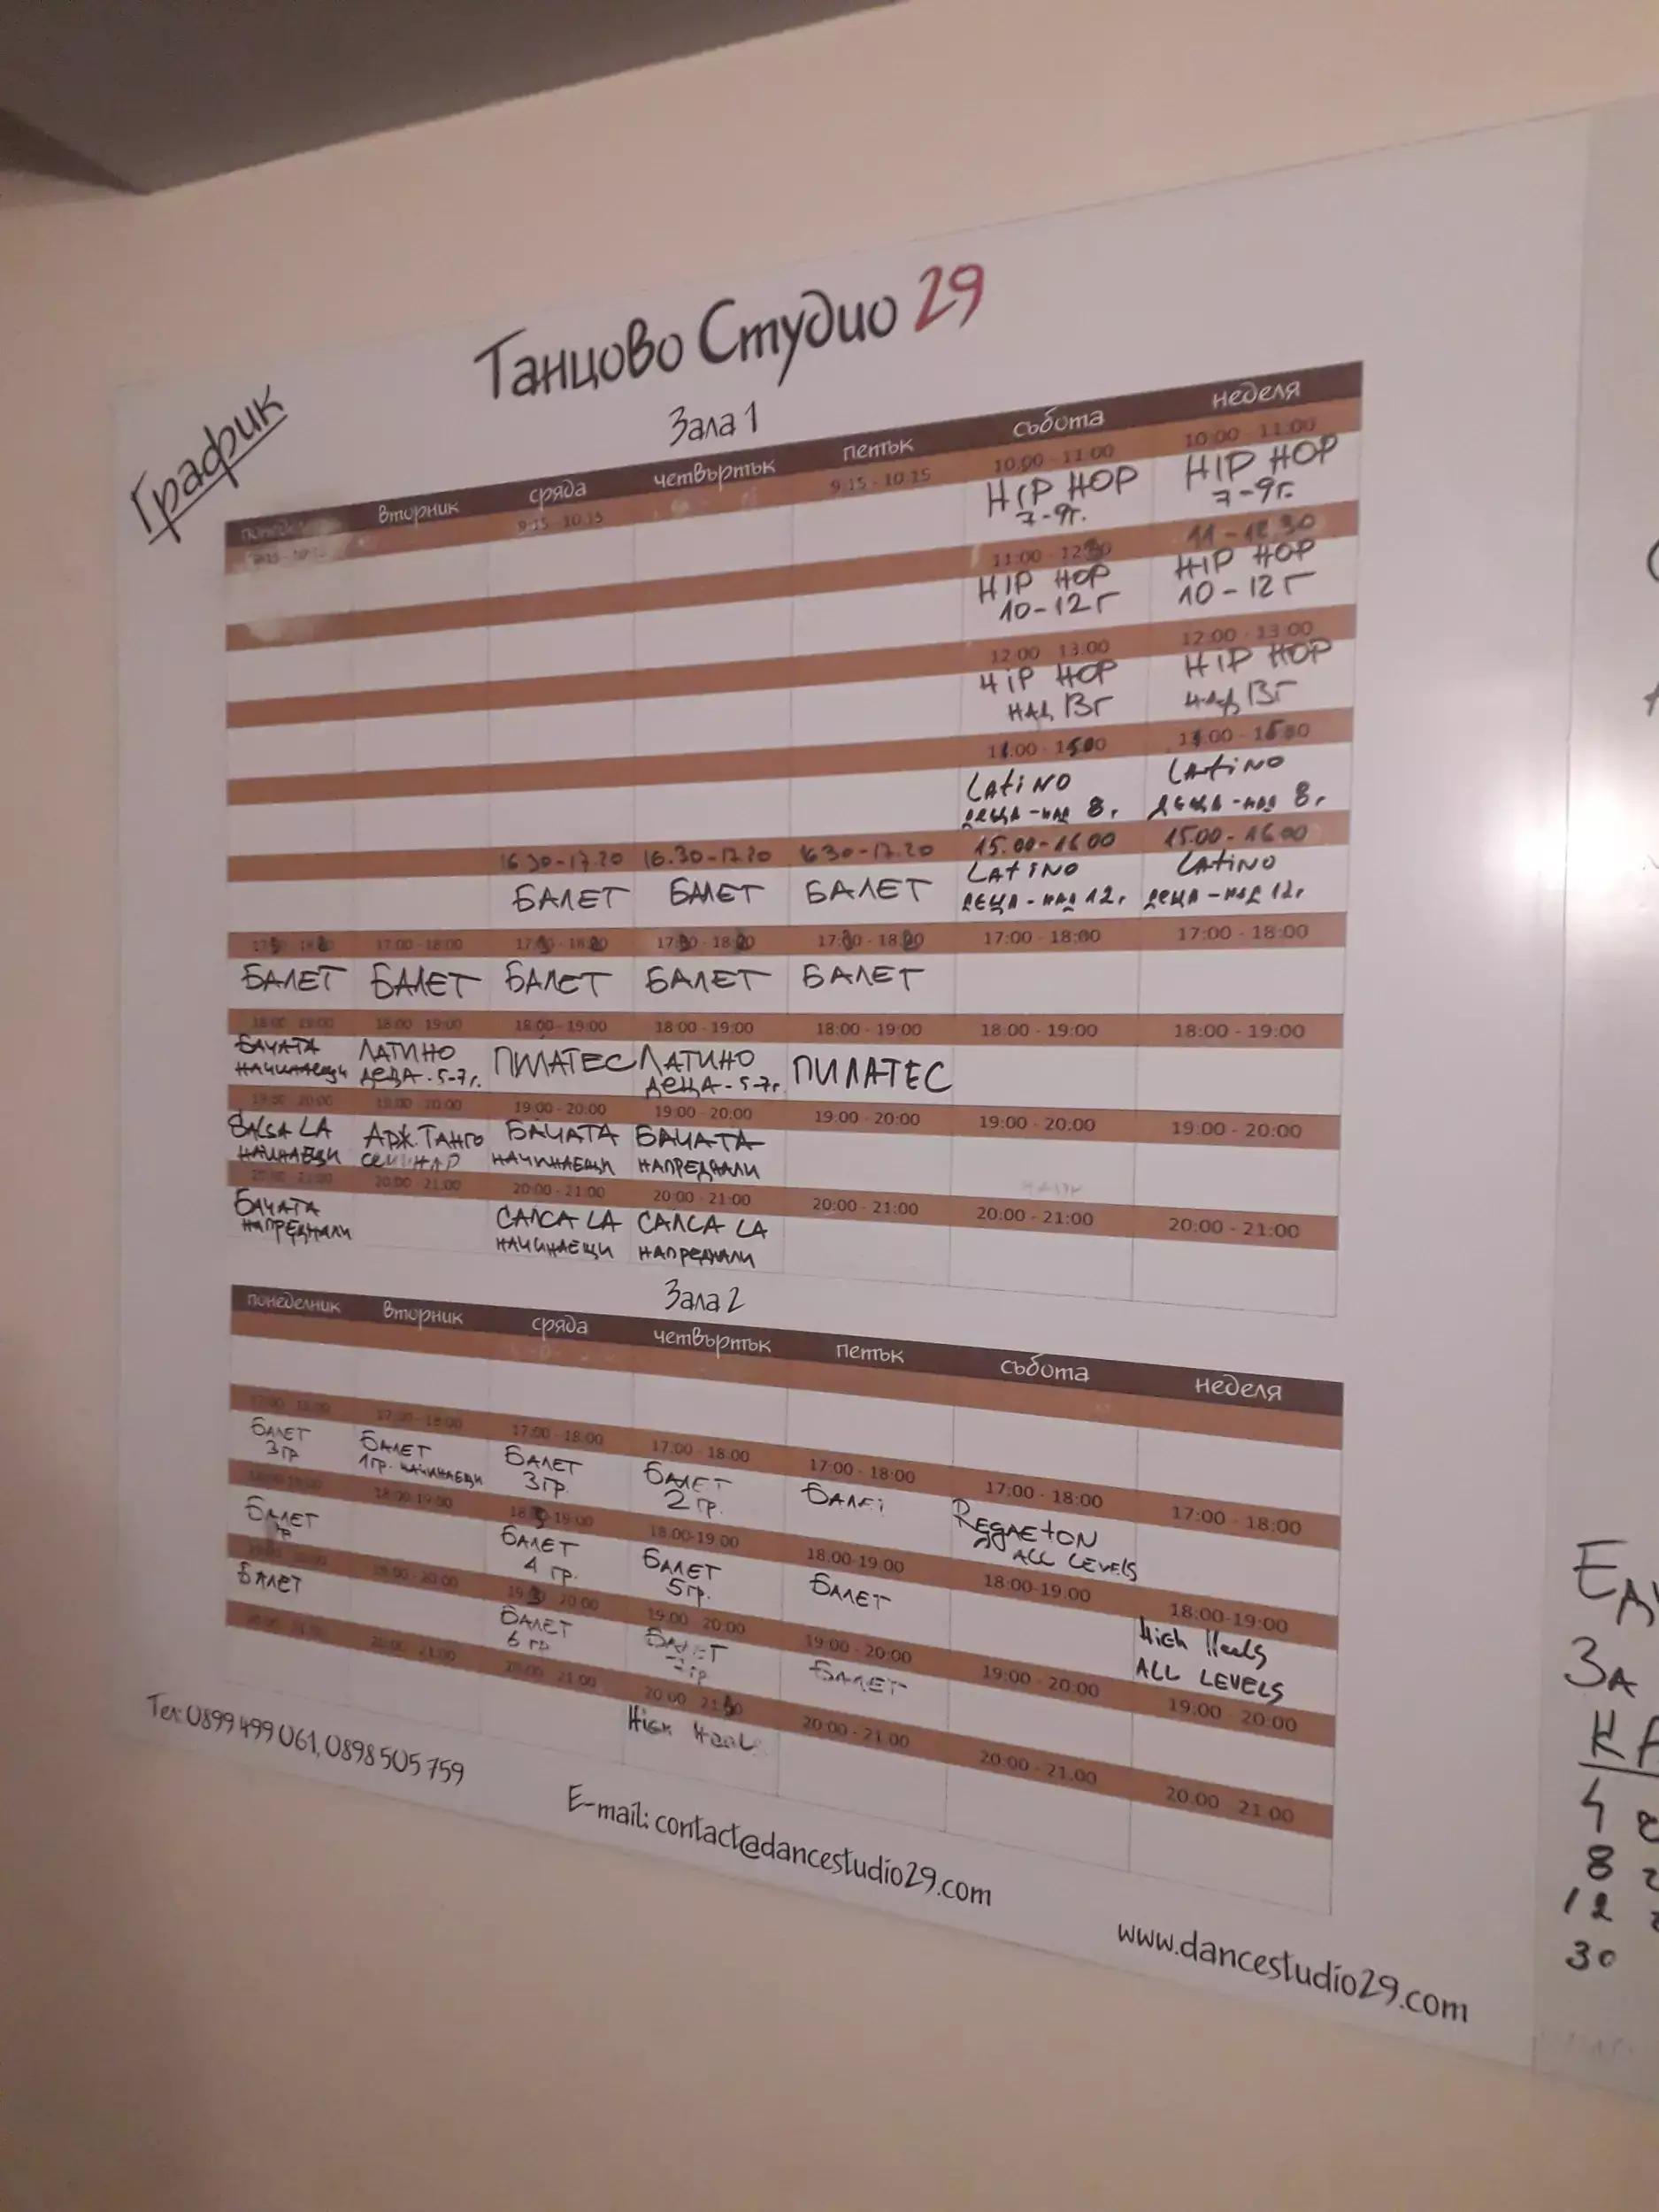 График
Танцово Студио 29
Зала 1
вторник сряда четвъртък петък събота неделя
9:15 - 10:15 9:15 - 10:15 10:00 - 11:00 10:00 - 11:00
HIP HOP HIP HOP
7-9г. 7-9г.
11:00 - 12 30 11 - 12 30
HIP HOP HIP HOP
10-12г 10-12г
12:00 13:00 12:00 - 13:00
HIP HOP HIP HOP
НАД 13г НАД 13г
LATINO LATINO
ДЕЦА - НАД 8 г ДЕЦА - НАД 8 г
16 30-17.20 16.30-17.20 16 30-17.20 15.00-16.00 15.00-16.00
БАЛЕТ БАЛЕТ БАЛЕТ LATINO LATINO
ДЕЦА - НАД 12 г ДЕЦА - НАД 12 г
17:00 - 18:00 17:00 - 18:00 17:00 - 18:00
БАЛЕТ БАЛЕТ БАЛЕТ БАЛЕТ БАЛЕТ
18:00 19:00 18:00 19:00 18:00 - 19:00 18:00 - 19:00 18:00 - 19:00 18:00 - 19:00 18:00 - 19:00
БАЧАТА ЛАТИНО ПИЛАТЕС ЛАТИНО ПИЛАТЕС
НАЧИНАЕЩИ ДЕЦА - 5-7г. ДЕЦА - 5-7г.
19:00 20:00 19:00 - 20:00 19:00 - 20:00 19:00 - 20:00 19:00 - 20:00 19:00 - 20:00
SALSA LA АРЖ. ТАНГО БАЧАТА БАЧАТА
СЕМИНАР НАЧИНАЕЩИ НАПРЕДНАЛИ
20:00 21:00 20:00 - 21:00 20:00 - 21:00 20:00 - 21:00 20:00 - 21:00 20:00 - 21:00
БАЧАТА САЛСА LA САЛСА LA
НАПРЕДНАЛИ НАЧИНАЕЩИ НАПРЕДНАЛИ
Зала 2
понеделник вторник сряда четвъртък петък събота неделя
17:00 - 18:00 17:00 - 18:00 17:00 - 18:00 17:00 - 18:00 17:00 - 18:00 17:00 - 18:00
БАЛЕТ БАЛЕТ БАЛЕТ БАЛЕТ БАЛЕТ REGGAETON
3гр 1гр. НАЧИНАЕЩИ 3гр. 2 гр. ALL LEVELS
18:00-19:00 18:00-19:00 18:00-19:00 18:00-19:00 18:00-19:00
БАЛЕТ БАЛЕТ БАЛЕТ БАЛЕТ High Heels
4 гр. 5гр. ALL LEVELS
19:00 20:00 19:00 - 20:00 19:00 - 20:00 19:00 20:00
БАЛЕТ БАЛЕТ БАЛЕТ БАЛЕТ
6 гр
20:00 - 21:00 20:00 - 21:00 20:00 21:00
High
Тел: 0899 499 061, 0898 505 759
E-mail: contact@dancestudio29.com
www.dancestudio29.com
ЗА
4
8
12
30